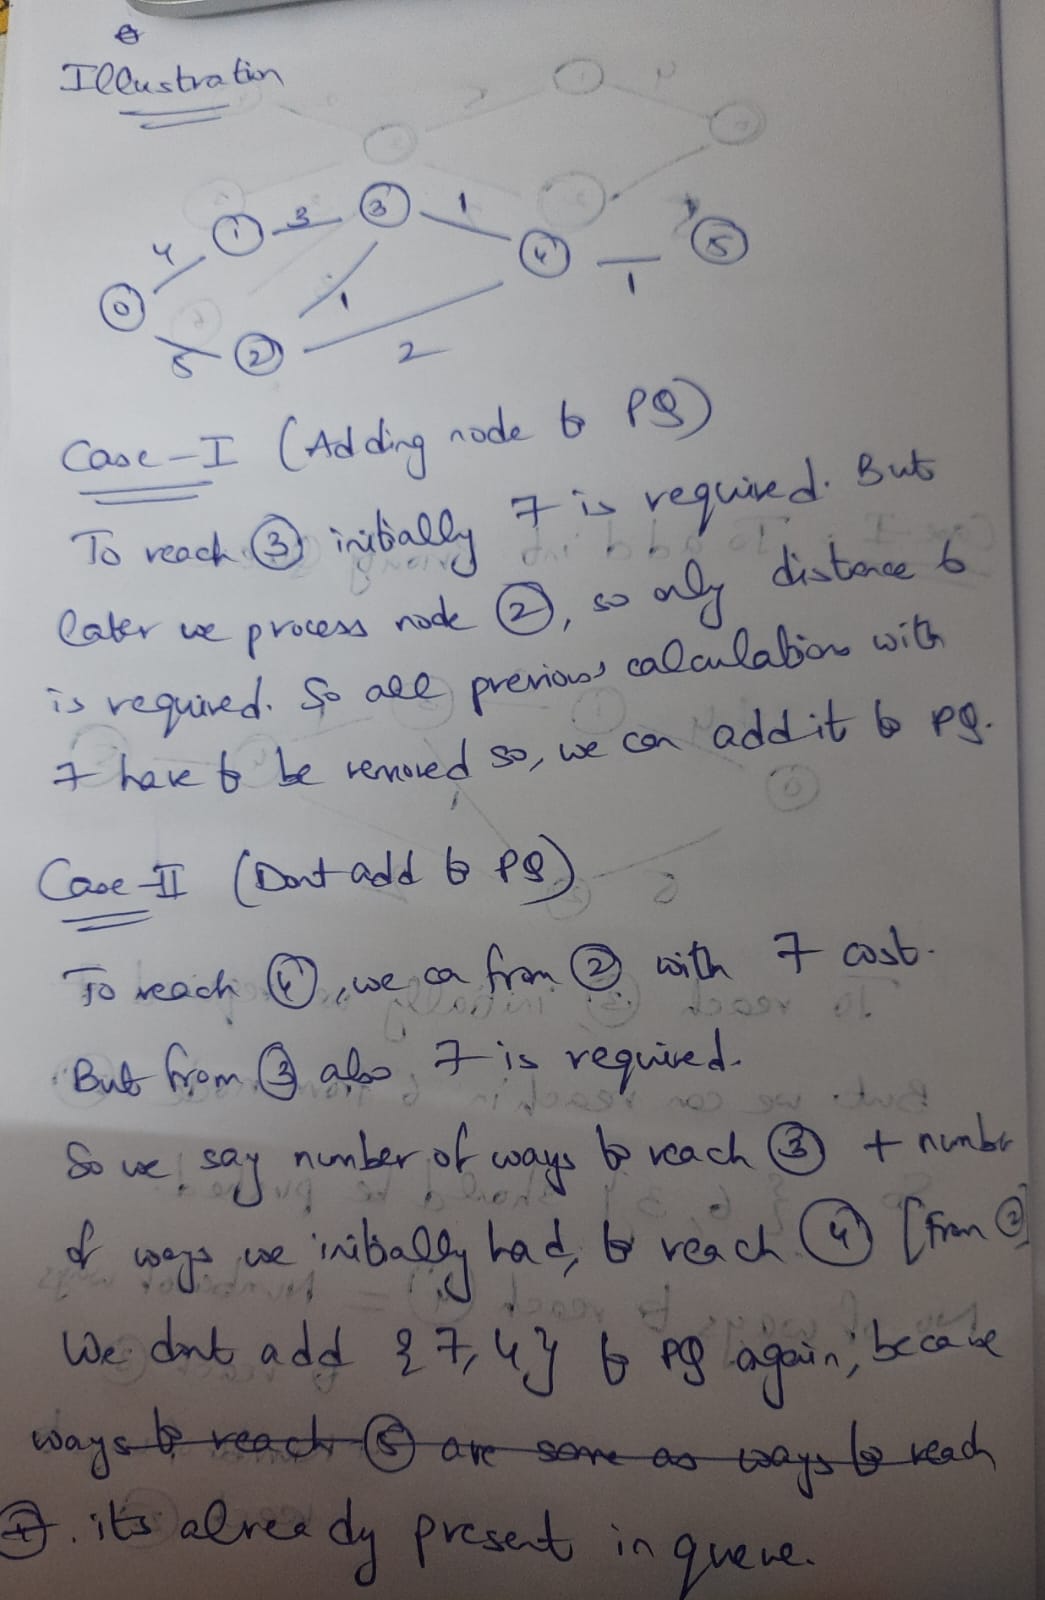 Illustration
4 3 1 1 5 1 2
0 1 2 3 4 5
Case-I (Adding node to PQ)
To reach ③ initially 7 is required. But
later we process node ②, so only distance 6
is required. So all previous calculations with
7 have to be removed so, we can add it to PQ.
Case-II (Dont add to PQ)
To reach ④, we ca from ② with 7 cost.
But from ③ also 7 is required.
So we say number of ways to reach ③ + number
of ways we initially had, to reach ④ [from ②]
We dont add {7,4} to PQ again, because
ways to reach ⑤ are same as ways to reach
④. its already present in queue.